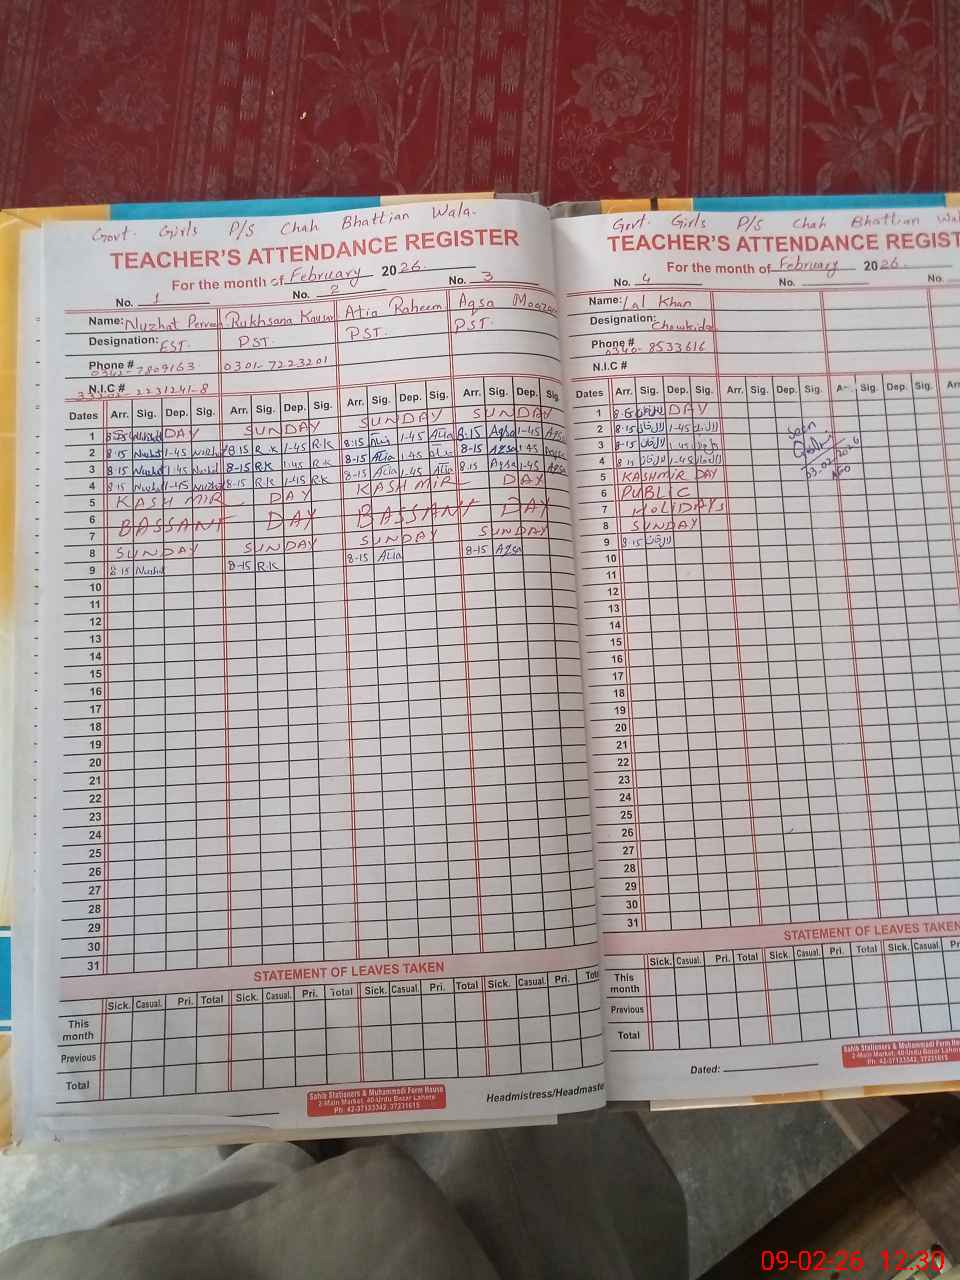 Govt. Girls P/S Chah Bhattian Wala.
TEACHER'S ATTENDANCE REGISTER
For the month of February 2026.
No. 1 No. 2 No. 3
Name: Nuzhat Perveen Rukhsana Kausar Atia Raheem Aqsa
Designation: EST. PST. PST. PST.
Phone # 0301-7223201
N.I.C #
Dates Arr. Sig. Dep. Sig. Arr. Sig. Dep. Sig. Arr. Sig. Dep. Sig. Arr. Sig. Dep. Sig.
1 SUNDAY SUNDAY SUNDAY SUNDAY
2 8-15 Nuzhat 1-45 Nuzhat 8-15 R.K 1-45 R.K 8-15 Atia 1-45 Atia 8-15 Aqsa 1-45 Aqsa
3 8-15 Nuzhat 1-45 Nuzhat 8-15 R.K 1-45 R.K 8-15 Atia 1-45 Atia 8-15 Aqsa 1-45 Aqsa
4 8-15 Nuzhat 1-45 Nuzhat 8-15 R.K 1-45 R.K 8-15 Atia 1-45 Atia 8-15 Aqsa 1-45 Aqsa
5 KASHMIR DAY KASHMIR DAY
6
BASSANT DAY BASSANT DAY
7
8 SUNDAY SUNDAY SUNDAY SUNDAY
9 8-15 Nuzhat 8-15 R.K 8-15 Atia 8-15 Aqsa
10
11
12
13
14
15
16
17
18
19
20
21
22
23
24
25
26
27
28
29
30
31
STATEMENT OF LEAVES TAKEN
Sick. Casual. Pri. Total Sick. Casual. Pri. Total Sick. Casual. Pri. Total Sick. Casual. Pri. Total
This month
Previous
Total
Sahib Stationers & Muhammadi Form House
2-Main Market, 40-Urdu Bazar Lahore
Ph: 42-37123342, 37231615
Headmistress/Headmaste
Govt. Girls P/S Chah Bhattian Wal
TEACHER'S ATTENDANCE REGIST
For the month of February 2026.
No. 4 No. No.
Name: Lal Khan
Designation: Chowkidar
Phone # 0340-8533616
N.I.C #
Dates Arr. Sig. Dep. Sig. Arr. Sig. Dep. Sig. Sig. Dep. Sig. Arr
1 DAY
2 8-15 لال خان 1-45
3 8-15 لال خان 1-45
4 8-15 لال خان 1-45
5 KASHMIR DAY
6 PUBLIC
7 HOLIDAYS
8 SUNDAY
9 8-15 لال خان
Seen
03.02.2026
AEO
10
11
12
13
14
15
16
17
18
19
20
21
22
23
24
25
26
27
28
29
30
31
STATEMENT OF LEAVES TAKEN
Sick. Casual. Pri. Total Sick. Casual. Pri. Total Sick. Casual. Pr
This month
Previous
Total
Dated:
Sahib Stationers & Muhammadi Form Hou
2-Main Market, 40-Urdu Bazar Lahore
Ph: 42-37123342, 37231615
09-02-26 12:30